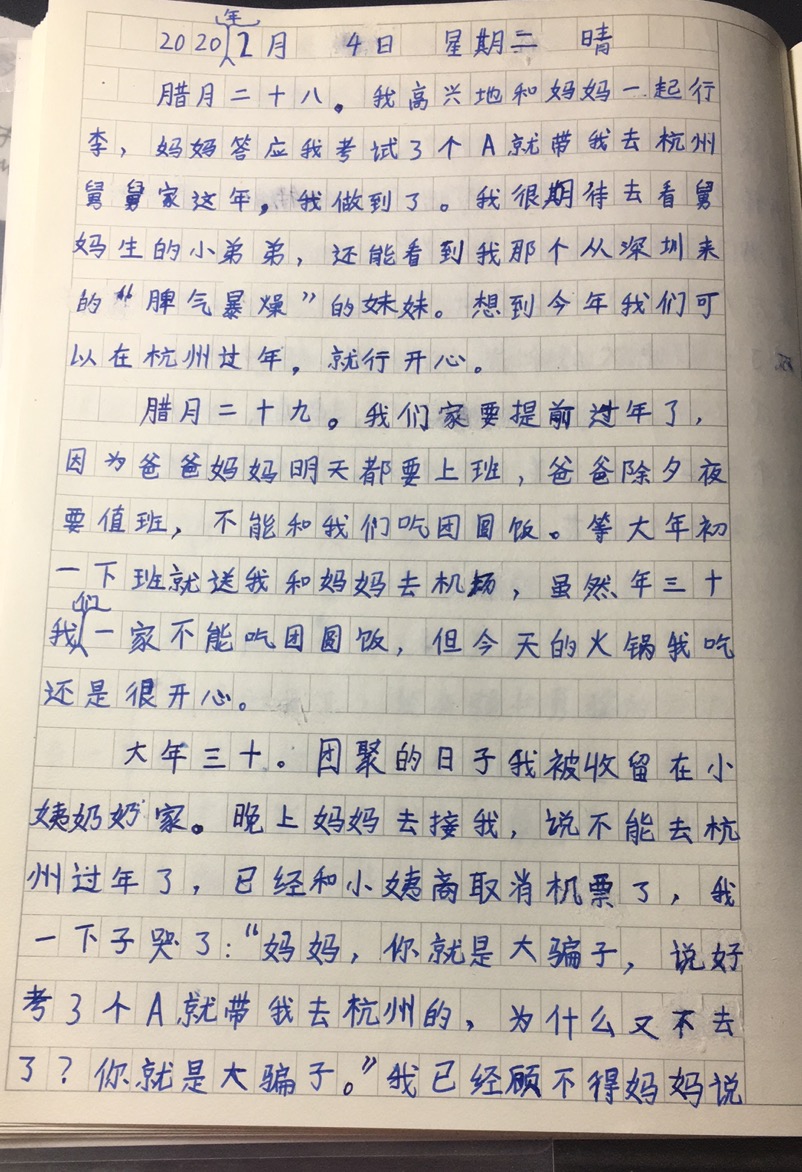 2020年2月 4日 星期二 晴
腊月二十八。我高兴地和妈妈一起行
李，妈妈答应我考试3个A就带我去杭州
舅舅家这年，我做到了。我很期待去看舅
妈生的小弟弟，还能看到我那个从深圳来
的“脾气暴燥”的妹妹。想到今年我们可
以在杭州过年，就行开心。
腊月二十九。我们家要提前过年了，
因为爸爸妈妈明天都要上班，爸爸除夕夜
要值班，不能和我们吃团圆饭。等大年初
一下班就送我和妈妈去机场，虽然年三十
我们一家不能吃团圆饭，但今天的火锅我吃
还是很开心。
大年三十。团聚的日子我被收留在小
姨奶奶家。晚上妈妈去接我，说不能去杭
州过年了，已经和小姨商取消机票了，我
一下子哭了：“妈妈，你就是大骗子，说好
考3个A就带我去杭州的，为什么又不去
了？你就是大骗子。”我已经顾不得妈妈说